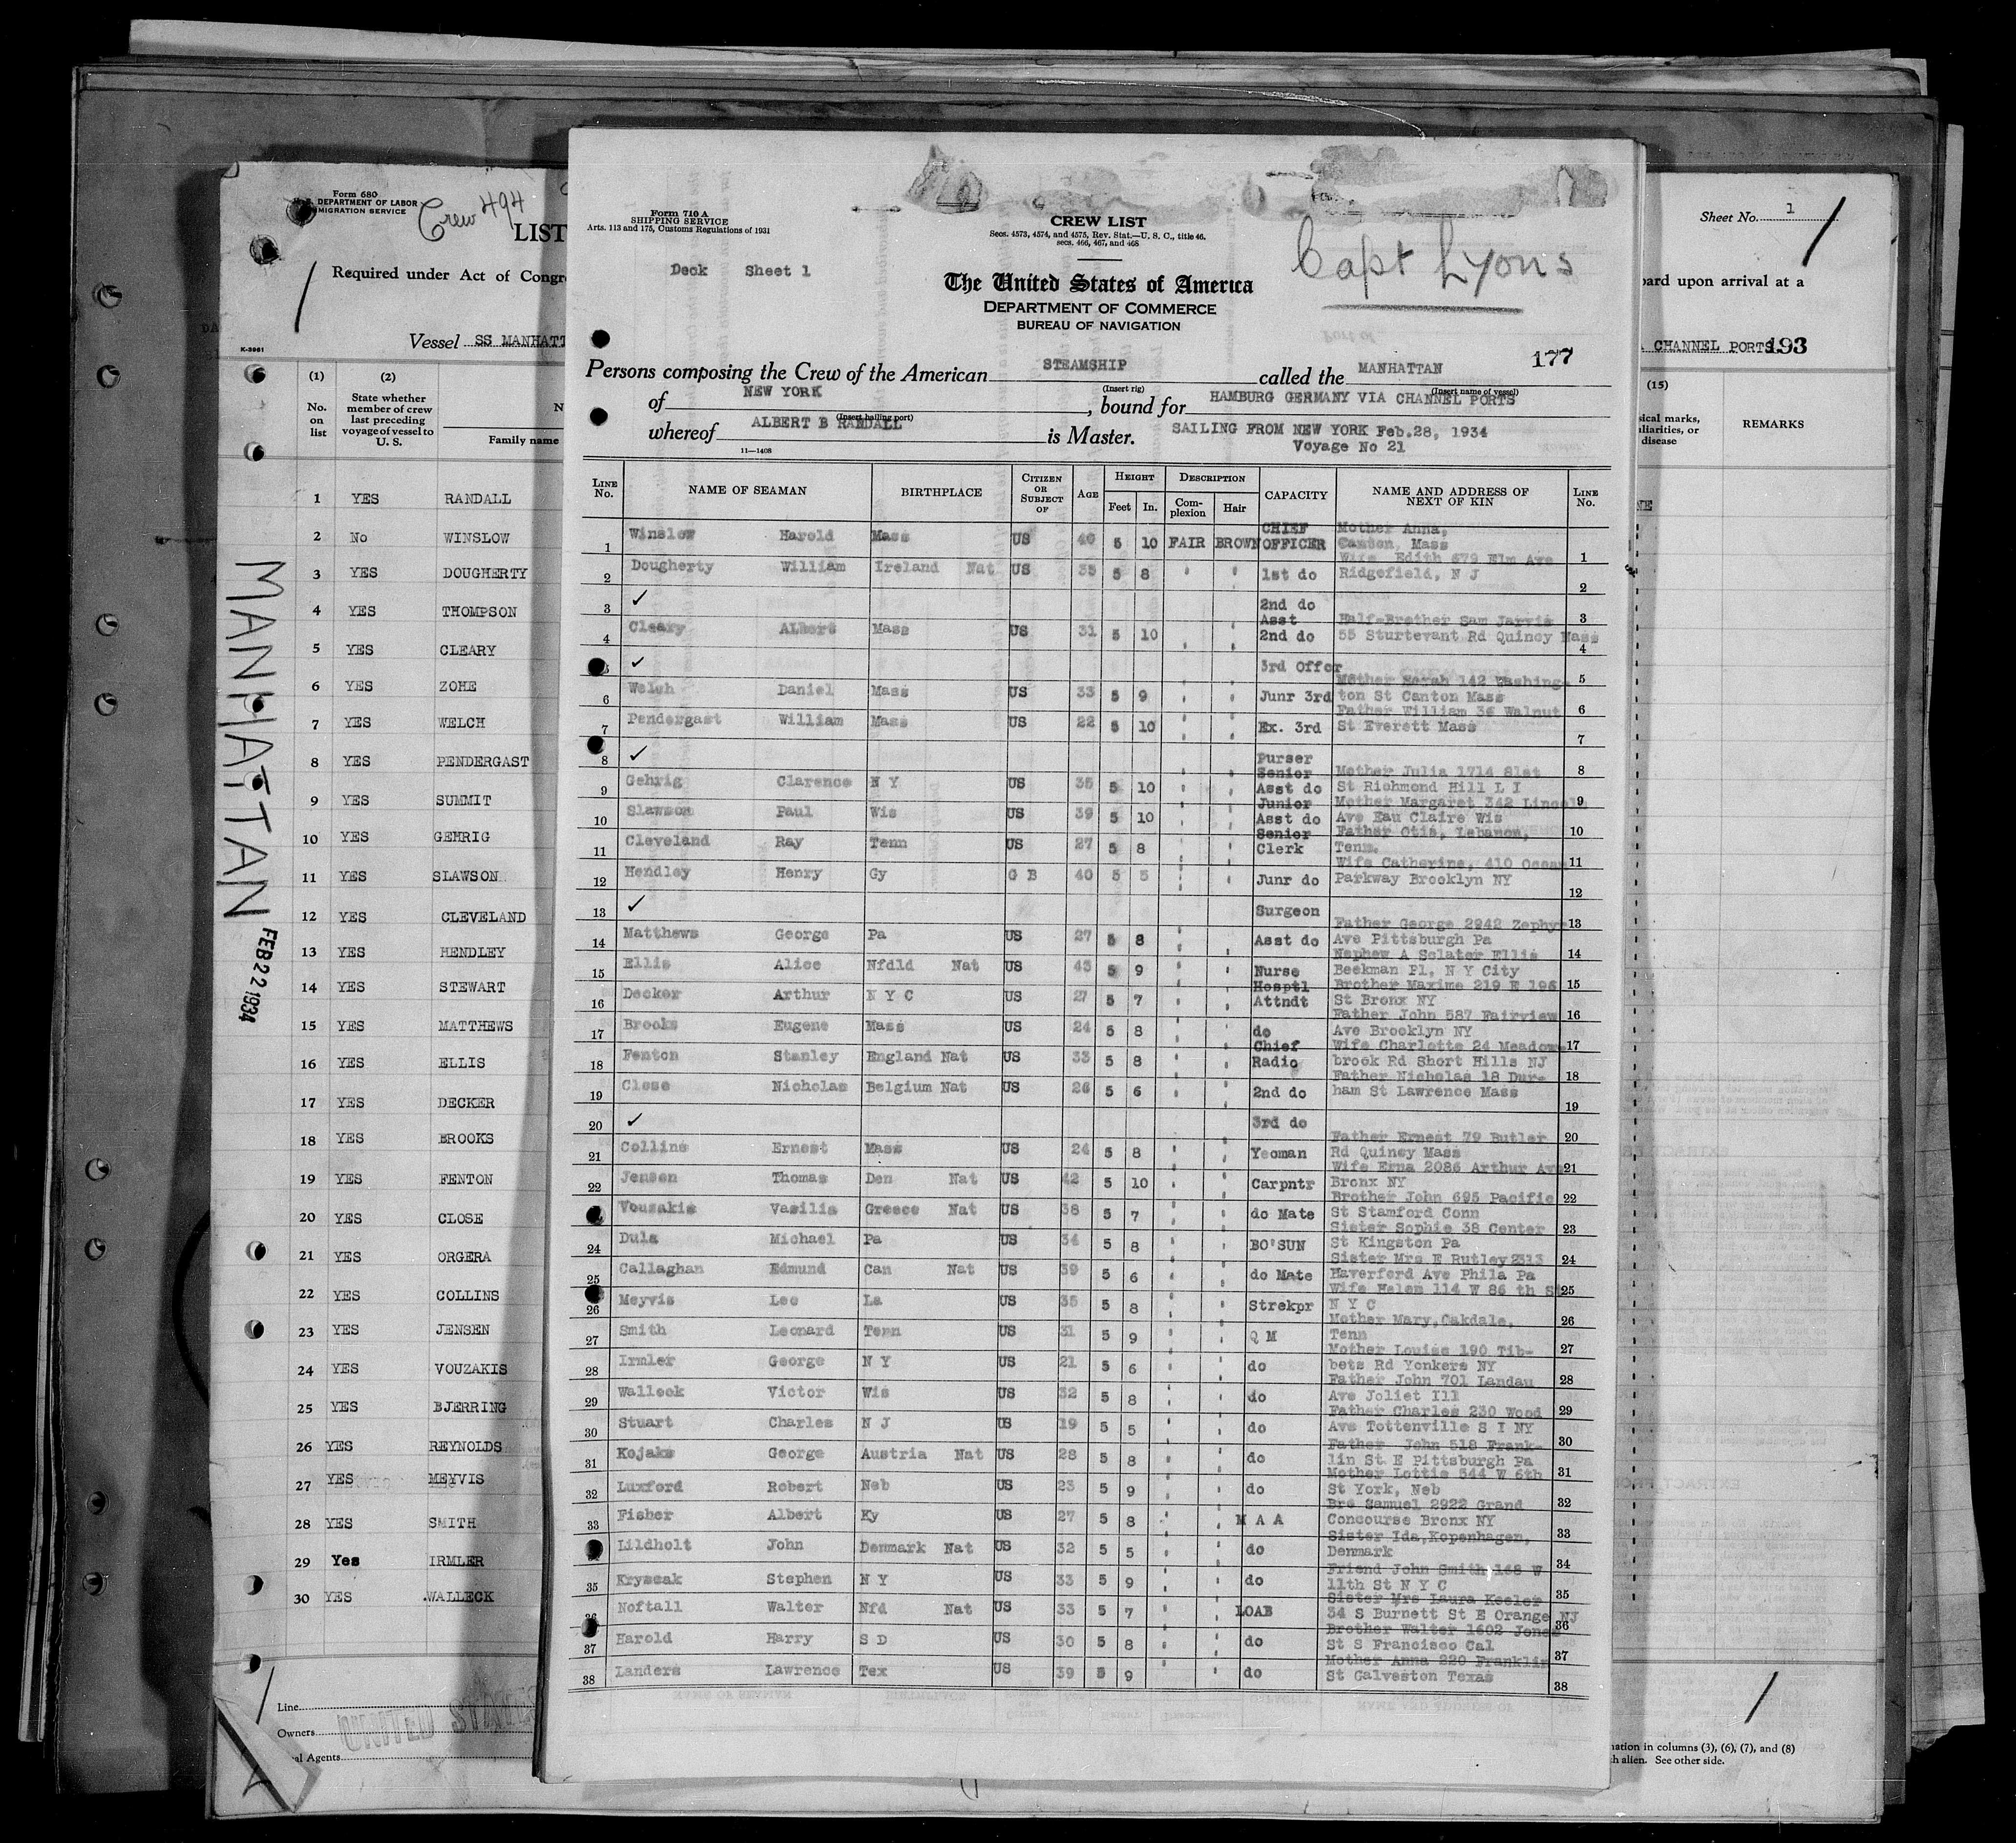 Form 680
DEPARTMENT OF LABOR
MIGRATION SERVICE
Crew 494
LIST
Required under Act of Congr
Vessel SS MANHATT
K-3981
(1) (2)
No. on list
State whether member of crew last preceding voyage of vessel to U. S.
Family name
1 YES RANDALL
2 No WINSLOW
3 YES DOUGHERTY
4 YES THOMPSON
5 YES CLEARY
6 YES ZOHE
7 YES WELCH
8 YES PENDERGAST
9 YES SUMMIT
10 YES GEHRIG
11 YES SLAWSON
12 YES CLEVELAND
13 YES HENDLEY
14 YES STEWART
15 YES MATTHEWS
16 YES ELLIS
17 YES DECKER
18 YES BROOKS
19 YES FENTON
20 YES CLOSE
21 YES ORGERA
22 YES COLLINS
23 YES JENSEN
24 YES VOUZAKIS
25 YES BJERRING
26 YES REYNOLDS
27 YES MEYVIS
28 YES SMITH
29 Yes IRMLER
30 YES WALLECK
Line
Owners
al Agents
UNITED STATES
MANHATTAN
FEB 22 1934
Form 710 A
SHIPPING SERVICE
Arts. 113 and 175, Customs Regulations of 1931
Deck Sheet 1
CREW LIST
Secs. 4573, 4574, and 4575, Rev. Stat.—U. S. C., title 46.
secs. 466, 467, and 468
The United States of America
DEPARTMENT OF COMMERCE
BUREAU OF NAVIGATION
Capt Lyons
177
Persons composing the Crew of the American STEAMSHIP called the MANHATTAN
(Insert rig) (Insert name of vessel)
of NEW YORK, bound for HAMBURG GERMANY VIA CHANNEL PORTS
(Insert hailing port)
whereof ALBERT B RANDALL is Master. SAILING FROM NEW YORK Feb.28, 1934
11—1408 Voyage No 21
LINE No. NAME OF SEAMAN BIRTHPLACE CITIZEN OR SUBJECT OF AGE HEIGHT Feet In. DESCRIPTION Complexion Hair CAPACITY NAME AND ADDRESS OF NEXT OF KIN LINE No.
1 Winslow Harold Mass US 40 5 10 FAIR BROWN CHIEF OFFICER Mother Anna, Canton, Mass 1
2 Dougherty William Ireland Nat US 35 5 8 " " 1st do Wife Edith 679 Elm Ave Ridgefield, N J 2
3 ✓ 2nd do 3
4 Cleary Albert Mass US 31 5 10 " " Asst 2nd do Half-Brother Sam Jarvis 55 Sturtevant Rd Quincy Mass 4
5 ✓ 3rd Offcr 5
6 Welch Daniel Mass US 33 5 9 " " Junr 3rd Mother Norah 142 Washington St Canton Mass 6
7 Pendergast William Mass US 22 5 10 " " Ex. 3rd Father William 36 Walnut St Everett Mass 7
8 ✓ Purser 8
9 Gehrig Clarence N Y US 35 5 10 " " Senior Asst do Mother Julia 1714 81st St Richmond Hill L I 9
10 Slawson Paul Wis US 39 5 10 " " Junior Asst do Mother Margaret 342 Lincoln Ave Eau Claire Wis 10
11 Cleveland Ray Tenn US 27 5 8 " " Senior Clerk Father Otis, Lebanon, Tenn. 11
12 Hendley Henry Gy G B 40 5 5 " " Junr do Wife Catherine, 410 Ocean Parkway Brooklyn NY 12
13 ✓ Surgeon 13
14 Matthews George Pa US 27 5 8 " " Asst do Father George 2942 Zephyr Ave Pittsburgh Pa 14
15 Ellis Alice Nfdld Nat US 43 5 9 " " Nurse Nephew A Sclater Ellis Beekman Pl, N Y City 15
16 Decker Arthur N Y C US 27 5 7 " " Hosptl Attndt Brother Maxime 219 E 196 St Bronx NY 16
17 Brooks Eugene Mass US 24 5 8 " " do Father John 587 Fairview Ave Brooklyn NY 17
18 Fenton Stanley England Nat US 33 5 8 " " Chief Radio Wife Charlotte 24 Meadowbrook Rd Short Hills NJ 18
19 Close Nicholas Belgium Nat US 26 5 6 " " 2nd do Father Nicholas 18 Dur- ham St Lawrence Mass 19
20 ✓ 3rd do 20
21 Collins Ernest Mass US 24 5 8 " " Yeoman Father Ernest 79 Butler Rd Quincy Mass 21
22 Jensen Thomas Den Nat US 42 5 10 " " Carpntr Wife Erna 2086 Arthur Ave Bronx NY 22
Vouzakis Vasilis Greece Nat US 38 5 7 " " do Mate Brother John 695 Pacific St Stamford Conn 23
24 Dula Michael Pa US 34 5 8 " " BO'SUN Sister Sophie 38 Center St Kingston Pa 24
25 Callaghan Edmund Can Nat US 39 5 6 " " do Mate Sister Mrs E Rutley 2313 Haverford Ave Phila Pa 25
26 Meyvis Leo La US 35 5 8 " " Strekpr Wife Helen 114 W 86 th St N Y C 26
27 Smith Leonard Tenn US 31 5 9 " " Q M Mother Mary, Oakdale, Tenn 27
28 Irmler George N Y US 21 5 6 " " do Mother Louise 190 Tib- bets Rd Yonkers NY 28
29 Walleck Victor Wis US 32 5 8 " " do Father John 701 Landau Ave Joliet Ill 29
30 Stuart Charles N J US 19 5 5 " " do Father Charles 230 Wood Ave Tottenville S I NY 30
31 Kojaks George Austria Nat US 28 5 8 " " do Father John 518 Frank- lin St E Pittsburgh Pa 31
32 Luxford Robert Neb US 23 5 9 " " do Mother Lottie 544 W 6th St York, Neb 32
33 Fisher Albert Ky US 27 5 8 " " M A A Bro Samuel 2922 Grand Concourse Bronx NY 33
Lildholt John Denmark Nat US 32 5 5 " " do Sister Ida, Kopenhagen, Denmark 34
35 Kryscak Stephen N Y US 33 5 9 " " do Friend John Smith 148 W 11th St N Y C 35
36 Noftall Walter Nfd Nat US 33 5 7 " " LOAB Sister Mrs Laura Keeler 34 S Burnett St E Orange NJ 36
37 Harold Harry S D US 30 5 8 " " do Brother Walter 1602 Jones St S Francisco Cal 37
38 Landers Lawrence Tex US 39 5 9 " " do Mother Anna 220 Franklin St Galveston Texas 38
Sheet No. 1
oard upon arrival at a
CHANNEL PORTS 193
(15)
sical marks, uliarities, or disease
REMARKS
NE
mation in columns (3), (6), (7), and (8)
h alien. See other side.